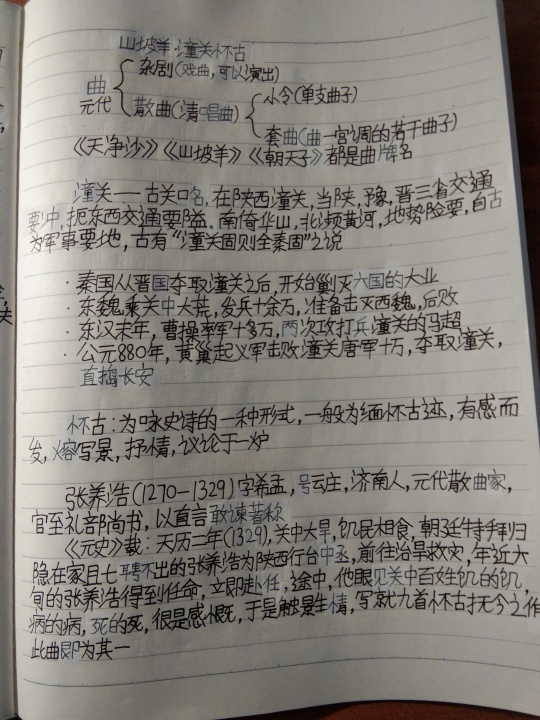 山坡羊·潼关怀古
杂剧(戏曲,可以演出)
曲
元代
散曲(清唱曲)
小令(单支曲子)
套曲(曲一宫调的若干曲子)
《天净沙》《山坡羊》《朝天子》都是曲牌名
潼关——古关口名,在陕西潼关,当陕,豫,晋三省交通
要冲,扼东西交通要隘、南倚华山,北濒黄河,地势险要,自古
为军事要地,古有“潼关固则全秦固”之说
·秦国从晋国夺取潼关之后,开始剿灭六国的大业
·东魏乘关中大荒,发兵十余万,准备击灭西魏,后败
·东汉末年,曹操率军十多万,两次攻打兵潼关的马超
·公元880年,黄巢起义军击败潼关唐军十万,夺取潼关,
直捣长安
怀古:为咏史诗的一种形式,一般为缅怀古迹,有感而
发,熔写景,抒情,议论于一炉
张养浩(1270—1329)字希孟,号云庄,济南人,元代散曲家,
官至礼部尚书,以直言敢谏著称
《元史》载:天历二年(1329),关中大旱,饥民相食,朝廷特拜归
隐在家且七聘不出的张养浩为陕西行台中丞,前往治旱救灾,年近六
旬的张养浩得到任命,立即赴任,途中,他眼见关中百姓饥的饥,
病的病,死的死,很是感慨,于是触景生情,写就九首怀古抚今之作
此曲即为其一